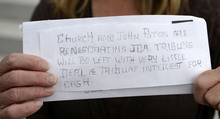 CHURCH AND JOHN PATON ARE
RENEGOTIATING JOA TRIBUNE
WILL BE LEFT WITH VERY LITTLE
DETAILS TRIBUNE INTEREST FOR
CASH.